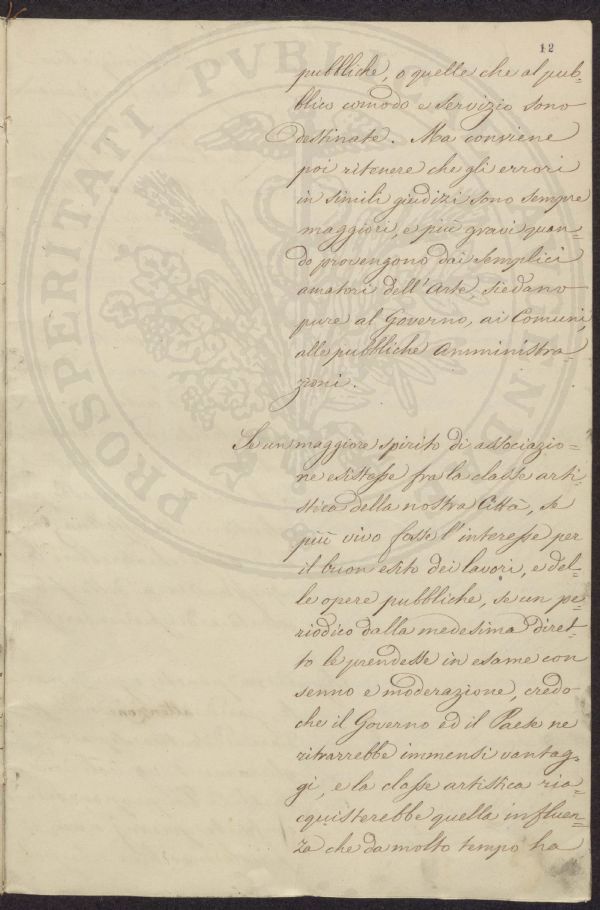 12
pubbliche, o quelle che al pub=
blico comodo e servizio sono
destinate. Ma conviene
poi ritenere che gli errori
in simili giudizi sono sempre
maggiori, e più gravi quan=
do provengono dai semplici
amatori dell'Arte, siedano
pure al Governo, ai Comuni,
alle pubbliche Amministra
zioni.
Se un maggiore spirito di associazio=
ne esistesse fra la classe arti=
stica della nostra Città, se
più vivo fosse l'interesse per
il buon esito dei lavori, e del=
le opere pubbliche, se un pe=
riodico dalla medesima diret=
to le prendesse in esame con
senno e moderazione, credo
che il Governo ed il Paese ne
ritrarrebbe immensi vantag=
gi, e la classe artistica ria=
cquisterebbe quella influen=
za che da molto tempo ha
PROSPERITATI PVBLICAE